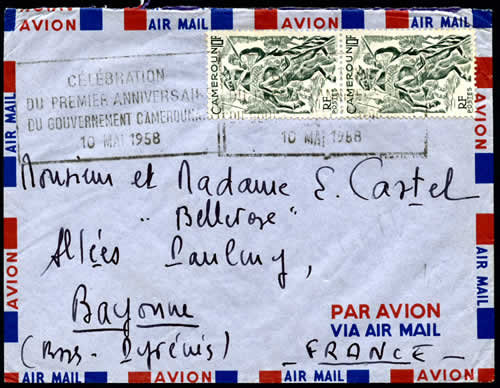 AVION AIR MAIL AVION AIR MAIL AVION AIR MAIL
CAMEROUN 10F RF POSTES
CAMEROUN 10F RF POSTES
CÉLÉBRATION
DU PREMIER ANNIVERSAIR
DU GOUVERNEMENT CAMEROUNA
10 MAI 1958
10 MAI 1958
Monsieur et Madame E. Castel
"Bellerose"
Allées Paulmy,
Bayonne
(Bses - Pyrénées)
PAR AVION
VIA AIR MAIL
_ FRANCE _
AIR MAIL
AVION
AIR MAIL
AVION
AIR MAIL
AVION
AVION AIR MAIL AVION AIR MAIL